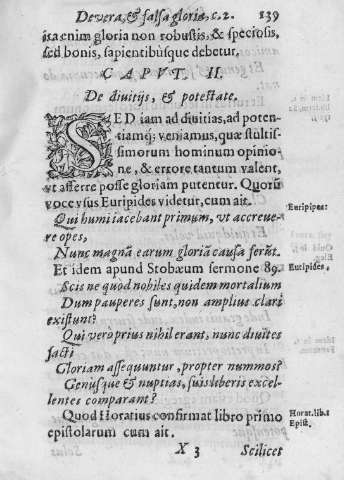 De vera, & falsa gloria, c. 2. 139
ita enim gloria non robustis, & speciosis,
sed bonis, sapientibùsque debetur.
CAPVT. II.
De diuitijs, & potestate.
SED iam ad diuitias, ad poten-
tiamq; veniamus, quæ stultis-
simorum hominum opinio
ne, & errore tantum valent,
vt afferre posse gloriam putentur. Quorũ
voce vsus Euripides videtur, cum ait.
Euripipes:
Qui humi iacebant primum, vt accreue-
re opes,
Nunc magnã earum gloriã causa ferũt.
Et idem apund Stobæum sermone 89.
Eutipides,
Scis ne quod nobiles quidem mortalium
Dum pauperes sunt, non amplius clari
existunt?
Qui verò prius nihil erant, nunc diuites
facti
Gloriam assequuntur, propter nummos?
Genúsque & nuptias, suis liberis excel-
lentes comparant?
Quod Horatius confirmat libro primo
Horat. lib. 1
epistolarum cum ait.
Epist.
X 3 Scilicet